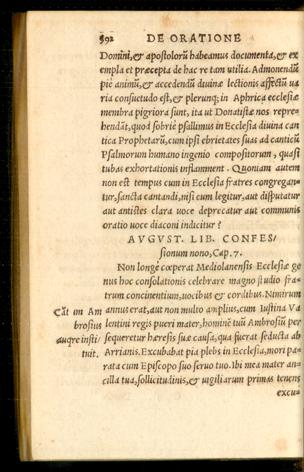 592 DE ORATIONE
Domini, & apostolorũ habeamus documenta, & ex
empla et præcepta de hac re tam utilia. Admonendũ
piè animũ, & accedendũ diuinæ lectionis affectũ ua
ria consuetudo est, & plerunq; in Aphrica ecclesiæ
membra pigriora sunt, ita ut Donatistæ nos repre-
hendãt, quòd sobriè psallimus in Ecclesia diuina can
tica Prophetarũ, cum ipsi ebrietates suas ad canticũ
Psalmorum humano ingenio compositorum, quasi
tubas exhortationis inflamment. Quoniam autem
non est tempus cum in Ecclesia fratres congregan-
tur, sancta cantandi, nisi cum legitur, aut disputatur
aut antistes clara uoce deprecatur aut communis
oratio uoce diaconi indicitur?
AVGVST. LIB. CONFES/
sionum nono, Cap. 7.
Non longè cœperat Mediolanensis Ecclesiæ ge
nus hoc consolationis celebrare magno studio fra-
trum concinentium, uocibus & cordibus. Nimirum
annus erat, aut non multo amplius, cum Iustina Va
lentini regis pueri mater, hominẽ tuũ Ambrosiũ per
sequeretur hæresis suæ causa, qua fuerat seducta ab
Arrianis. Excubabat pia plebs in Ecclesia, mori pa-
rata cum Episcopo suo seruo tuo. Ibi mea mater an-
cilla tua, sollicitudinis, & uigiliarum primas tenens
excu-
Cãt us Am
brosius
quare insti/
tuit.